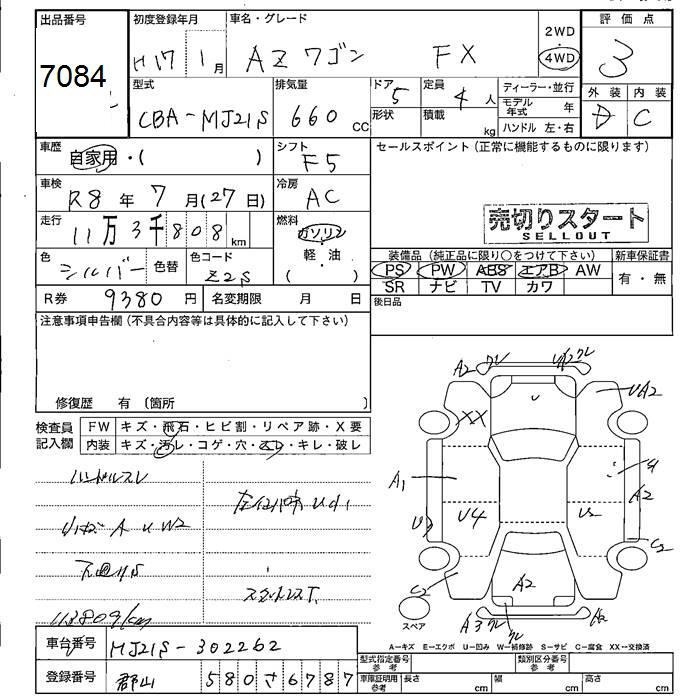 出品番号
7084
初度登録年月
H17 1月
車名・グレード
AZワゴン FX
2WD
4WD
評価点
3
型式
CBA-MJ21S
排気量
660 CC
ドア
5
形状
定員
4人
積載
kg
ディーラー・並行
モデル年式 年
ハンドル 左・右
外装
D
内装
C
車歴
自家用・( )
シフト
F5
セールスポイント (正常に機能するものに限ります)
車検
R8年7月(27日)
冷房
AC
走行
11万3千808km
燃料
ガソリン
軽・油
( )
売切りスタート
SELLOUT
色
シルバー
色替
色コード
Z2S
装備品 (純正品に限り○をつけて下さい)
PS PW ABS エアB AW
SR ナビ TV カワ
新車保証書
有・無
R券 9380円
名変期限 月 日
後日品
注意事項申告欄 (不具合内容等は具体的に記入して下さい)
修復歴 有 〔箇所 〕
検査員記入欄
FW キズ・飛石・ヒビ割・リペア跡・X要
内装 キズ・汚レ・コゲ・穴・スレ・キレ・破レ
ハンドルスレ
A2
UA2
XX
A1
A2
U4
U2
C2
C2
A2
A3
スペア
A-キズ E-エクボ U-凹み W-補修跡 S-サビ C-腐食 XX-交換済
車台番号
MJ21S-302262
登録番号
郡山 580さ6787
型式指定番号 参考
類別区分番号 参考
車庫証明用 参考
長さ cm
幅 cm
高さ cm